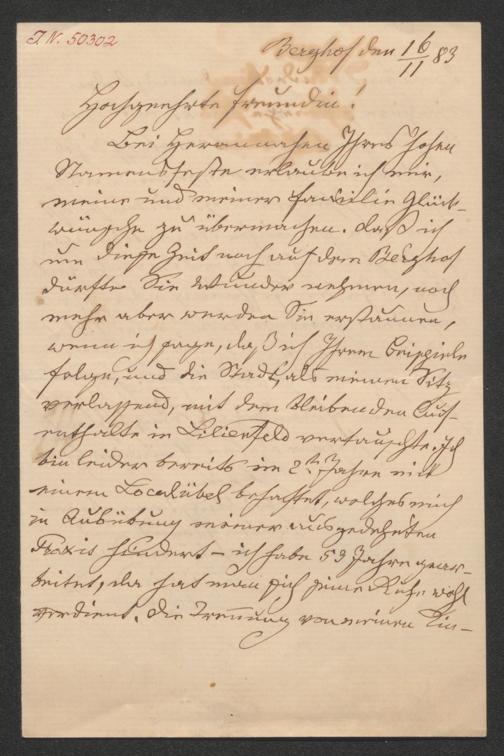 I.N. 50302
Berghof den 16/11 83
Hochgeehrte Freundin!
Bei Herannahen Ihres hohen
Namensfeste erlaube ich mir,
meine und meiner Familie Glück-
wünsche zu übermachen. Daß ich
um diese Zeit noch auf dem Berghof
dürfte Sie Wunder nehmen, noch
mehr aber werden Sie erstaunen,
wenn ich sage, daß ich Ihrem Beispiele
folge, und die Stadt, als meinen Sitz
verlassend, mit dem bleibenden Auf-
enthalte in Lilienfeld vertauschte. Ich
bin leider bereits im 2ten Jahre mit
einem Localübel behaftet, welches mich
in Ausübung meiner ausgedehnten
Praxis hindert – ich habe 59 Jahre gear-
beitet, da hat man sich seine Ruhe wohl
verdient. Die Trennung von meinen Kin-